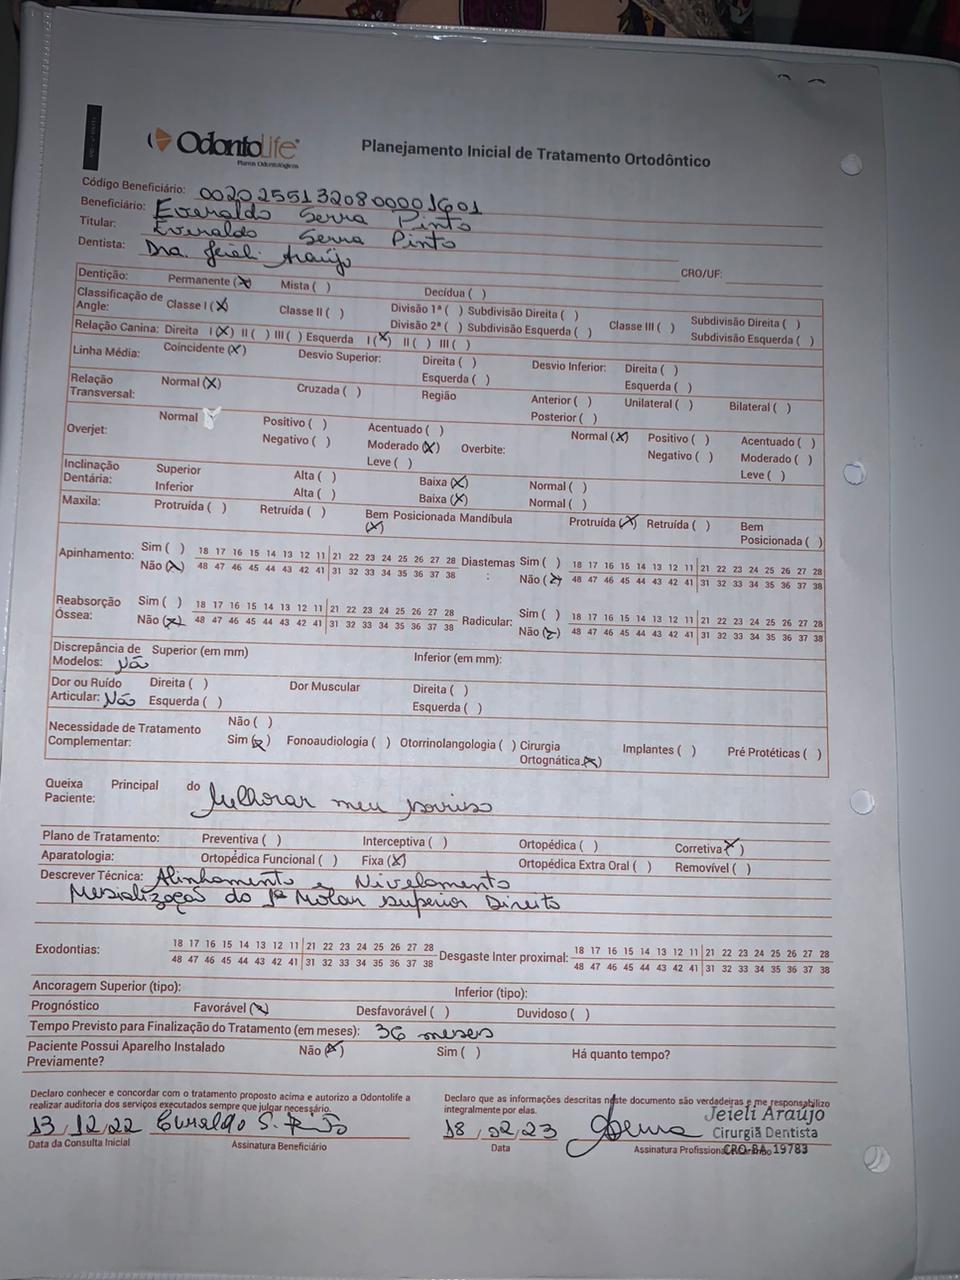 OdontoLife
Planos Odontológicos
Planejamento Inicial de Tratamento Ortodôntico
Código Beneficiário: 00202551320800001601
Beneficiário: Everaldo Serra Pinto
Titular: Everaldo Serra Pinto
Dentista: Dra. Jeieli Araújo CRO/UF:
Dentição: Permanente (X) Mista ( ) Decídua ( )
Classificação de Angle: Classe I (X) Classe II ( ) Divisão 1ª ( ) Subdivisão Direita ( ) Classe III ( ) Subdivisão Direita ( )
Divisão 2ª ( ) Subdivisão Esquerda ( ) Subdivisão Esquerda ( )
Relação Canina: Direita I (X) II ( ) III ( ) Esquerda I (X) II ( ) III ( )
Linha Média: Coincidente (X) Desvio Superior: Direita ( ) Desvio Inferior: Direita ( )
Esquerda ( ) Esquerda ( )
Relação Transversal: Normal (X) Cruzada ( ) Região Anterior ( ) Unilateral ( ) Bilateral ( )
Posterior ( )
Overjet: Normal Positivo ( ) Acentuado ( ) Overbite: Normal (X) Positivo ( ) Acentuado ( )
Negativo ( ) Moderado (X) Negativo ( ) Moderado ( )
Leve ( ) Leve ( )
Inclinação Dentária: Superior Alta ( ) Baixa (X) Normal ( )
Inferior Alta ( ) Baixa (X) Normal ( )
Maxila: Protruída ( ) Retruída ( ) Bem Posicionada (X) Mandíbula Protruída (X) Retruída ( ) Bem Posicionada ( )
Apinhamento: Sim ( ) 18 17 16 15 14 13 12 11 21 22 23 24 25 26 27 28 Diastemas: Sim ( ) 18 17 16 15 14 13 12 11 21 22 23 24 25 26 27 28
Não (X) 48 47 46 45 44 43 42 41 31 32 33 34 35 36 37 38 Não (X) 48 47 46 45 44 43 42 41 31 32 33 34 35 36 37 38
Reabsorção Óssea: Sim ( ) 18 17 16 15 14 13 12 11 21 22 23 24 25 26 27 28 Radicular: Sim ( ) 18 17 16 15 14 13 12 11 21 22 23 24 25 26 27 28
Não (X) 48 47 46 45 44 43 42 41 31 32 33 34 35 36 37 38 Não (X) 48 47 46 45 44 43 42 41 31 32 33 34 35 36 37 38
Discrepância de Modelos: Não Superior (em mm) Inferior (em mm):
Dor ou Ruído Articular: Não Direita ( ) Dor Muscular Direita ( )
Esquerda ( ) Esquerda ( )
Necessidade de Tratamento Complementar: Não ( )
Sim (X) Fonoaudiologia ( ) Otorrinolangologia ( ) Cirurgia Ortognática (X) Implantes ( ) Pré Protéticas ( )
Queixa Principal do Paciente: Melhorar meu sorriso
Plano de Tratamento: Preventiva ( ) Interceptiva ( ) Ortopédica ( ) Corretiva (X)
Aparatologia: Ortopédica Funcional ( ) Fixa (X) Ortopédica Extra Oral ( ) Removível ( )
Descrever Técnica: Alinhamento e Nivelamento
Mesialização do 1º Molar superior Direito
Exodontias: 18 17 16 15 14 13 12 11 21 22 23 24 25 26 27 28 Desgaste Inter proximal: 18 17 16 15 14 13 12 11 21 22 23 24 25 26 27 28
48 47 46 45 44 43 42 41 31 32 33 34 35 36 37 38 48 47 46 45 44 43 42 41 31 32 33 34 35 36 37 38
Ancoragem Superior (tipo): Inferior (tipo):
Prognóstico Favorável (X) Desfavorável ( ) Duvidoso ( )
Tempo Previsto para Finalização do Tratamento (em meses): 36 meses
Paciente Possui Aparelho Instalado Previamente? Não (X) Sim ( ) Há quanto tempo?
Declaro conhecer e concordar com o tratamento proposto acima e autorizo a Odontolife a
realizar auditoria dos serviços executados sempre que julgar necessário.
13/12/22 Everaldo S. Pinto
Data da Consulta Inicial Assinatura Beneficiário
Declaro que as informações descritas neste documento são verdadeiras e me responsabilizo
integralmente por elas.
18/02/23
Jeieli Araújo
Cirurgiã Dentista
CRO-BA 19783
Data Assinatura Profissional